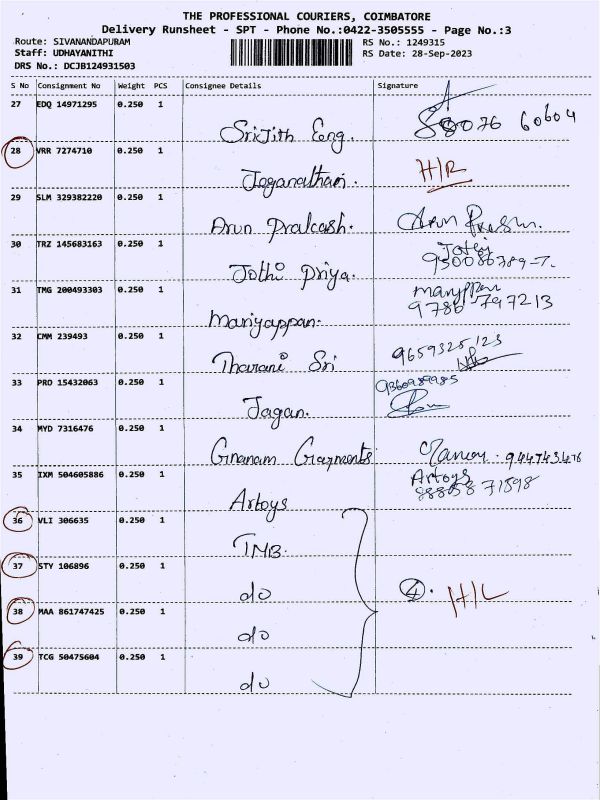 THE PROFESSIONAL COURIERS, COIMBATORE
Delivery Runsheet - SPT - Phone No.:0422-3505555 - Page No.:3
Route: SIVANANDAPURAM RS No.: 1249315
Staff: UDHAYANITHI RS Date: 28-Sep-2023
DRS No.: DCJB124931503
S No Consignment No Weight PCS Consignee Details Signature
27 EDQ 14971295 0.250 1
Srijith Eng. 88076 60604
28 VRR 7274710 0.250 1
Jeganathan. H/R
29 SLM 329382220 0.250 1
Arun Prakash. Arun
30 TRZ 145683163 0.250 1
Jothi Priya. Jothi
31 TMG 200493303 0.250 1
Mariyappan. 9786 797213
32 CMM 239493 0.250 1
Tharani Sri 9659325123
33 PRO 15432063 0.250 1
Jagan. 9360989985
34 MYD 7316476 0.250 1
Gnanam Garments
35 IXM 504605886 0.250 1
Artoys Artoys
36 VLI 306635 0.250 1
TMB.
37 STY 106896 0.250 1
do 4. H/L
38 MAA 861747425 0.250 1
do
39 TCG 50475604 0.250 1
do